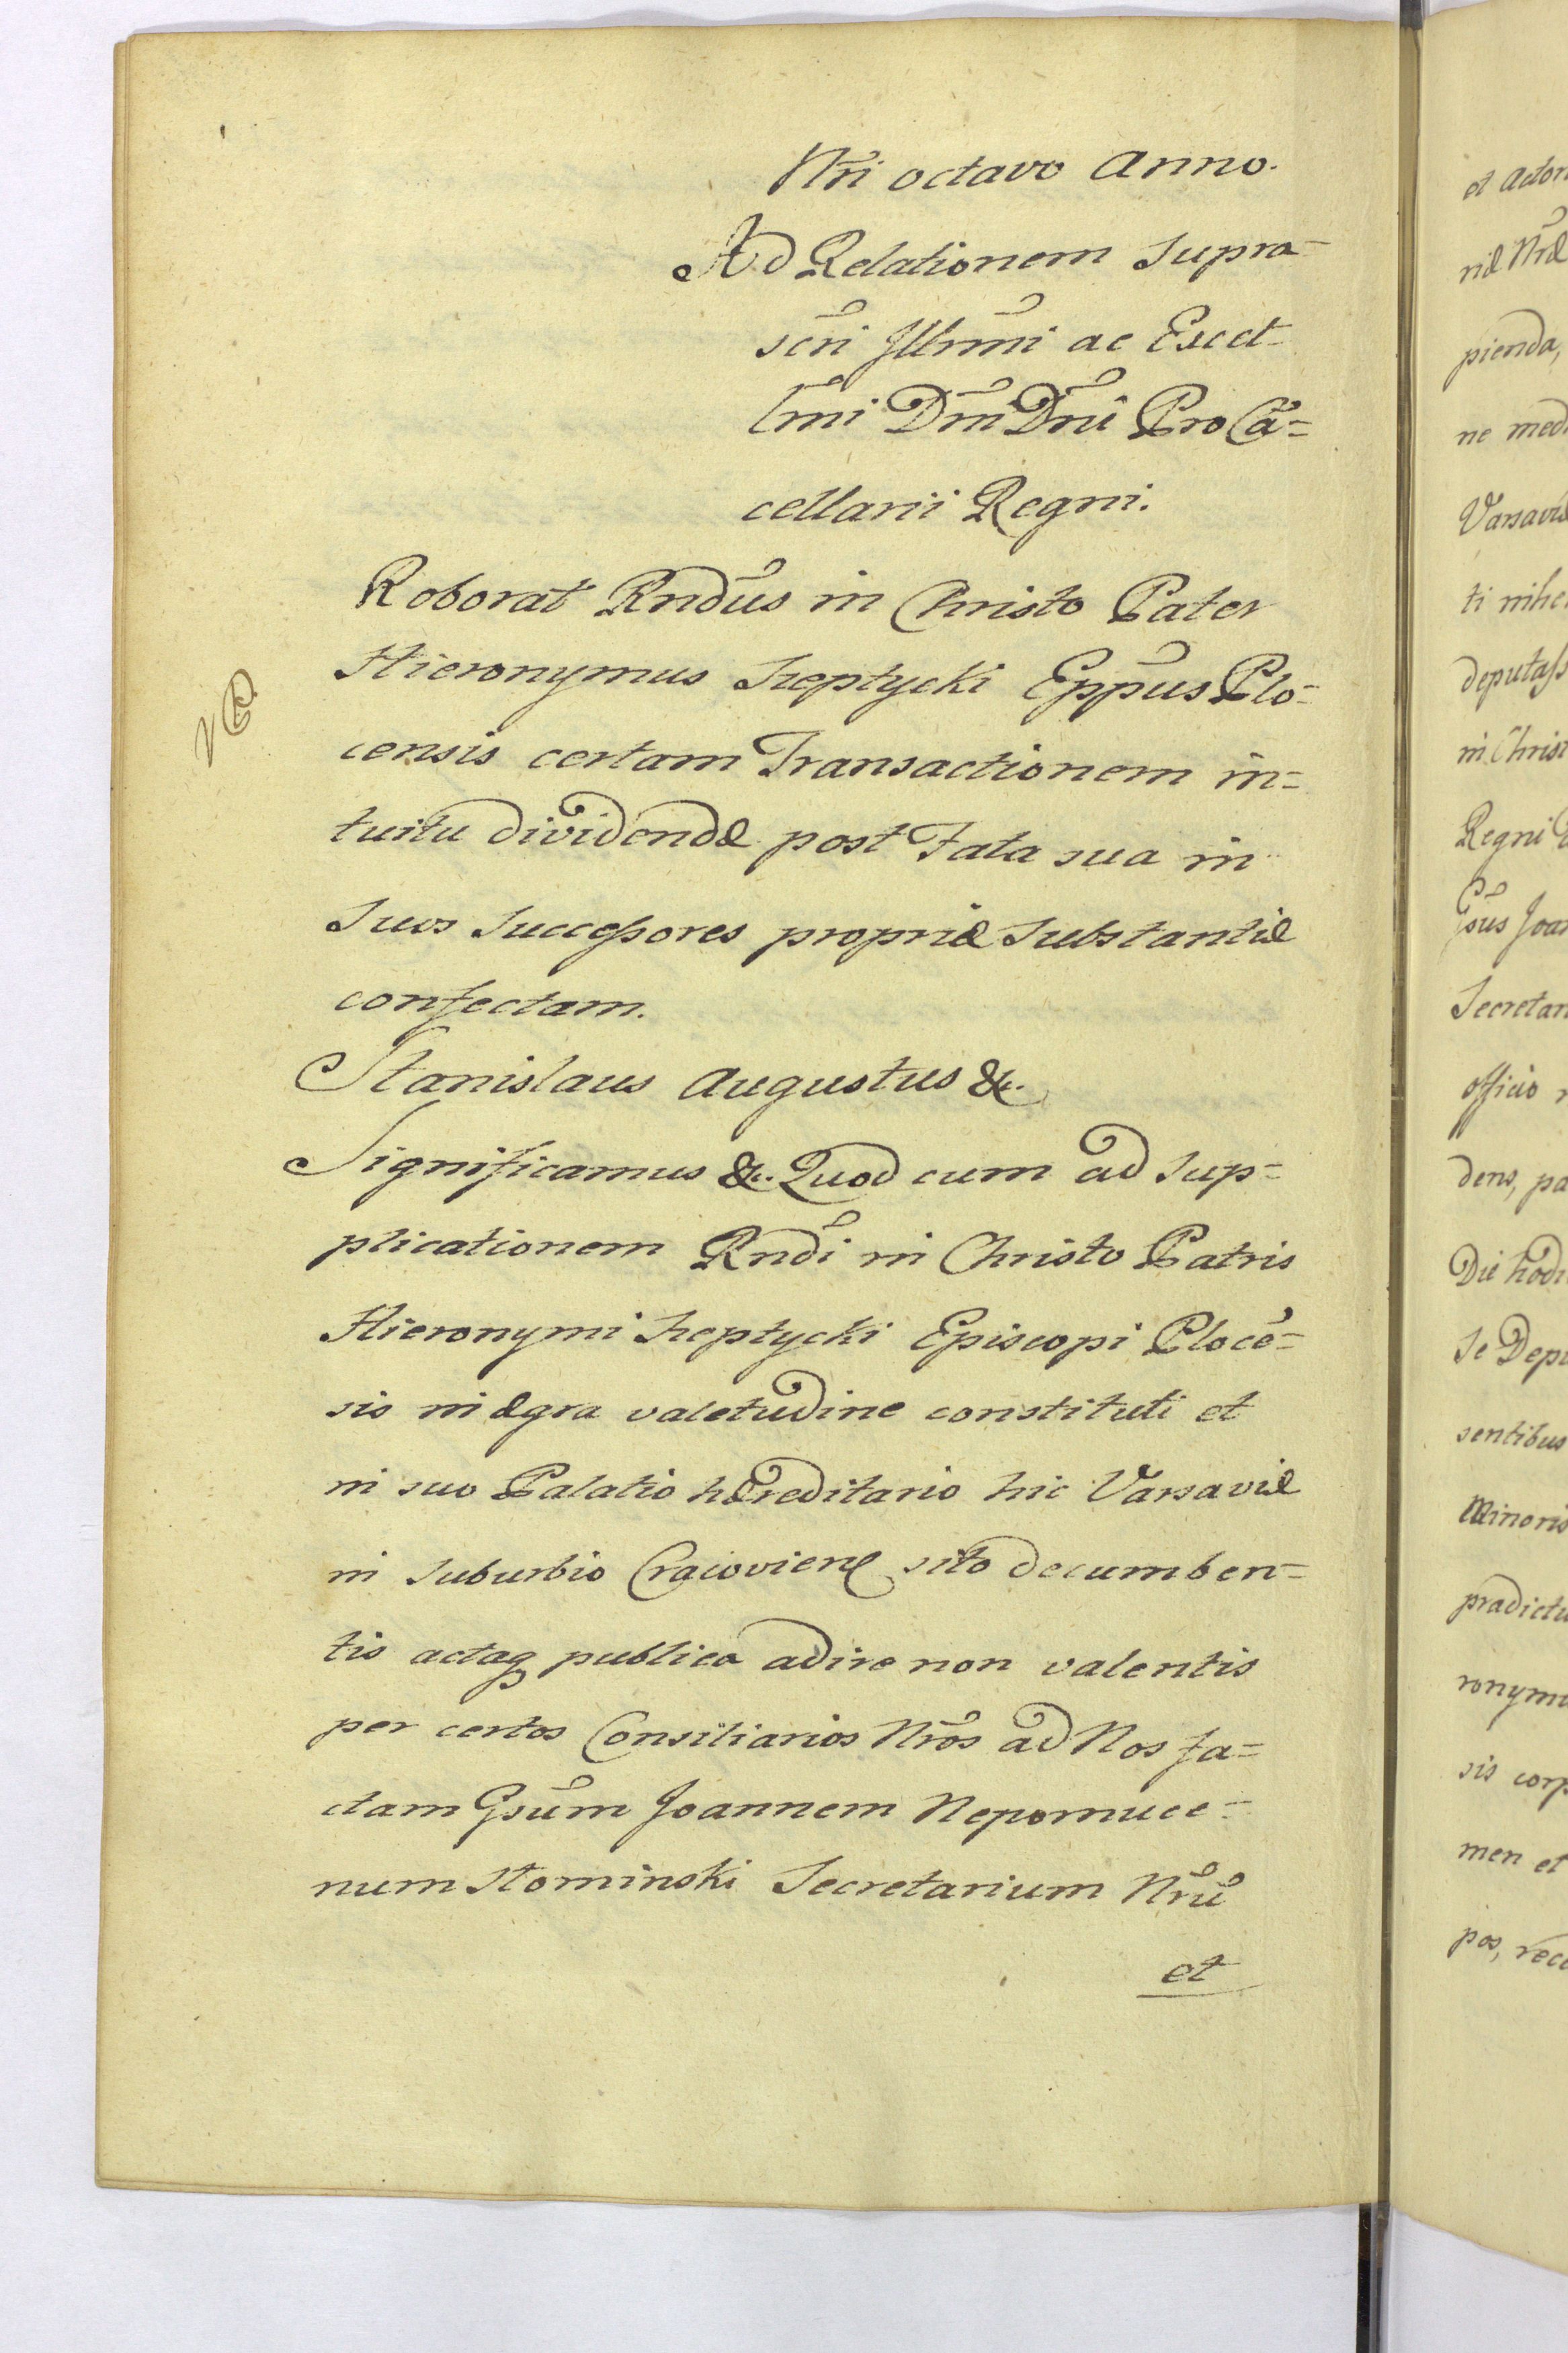 Nr̃i octavo Anno.
Ad Relationem Supra-
scr̃i Jllrm̃i ac Excel-
lm̃i Dñi Dñi ProCã=
cellarii Regni.
Roborat Rndũs in Christo Pater
Hieronymus Szeptycki Epp̃us Plo-
censis certam Transactionem in=
tuitu dividendæ post Fata sua in
suos Successores propriæ Substantiæ
confectam.
Stanislaus Augustus &c.
Significamus &c. Quod cum ad sup=
plicationem Rndĩ in Christo Patris
Hieronymi Szeptycki Episcopi Plocẽ=
sis in ægra valetudine constituti et
in suo Palatio hæreditario hic Varsaviæ
in Suburbio Cracovien̄ sito decumben=
tis actaq̃ publica adire non valentis
per certos Consiliarios Nr̃os ad Nos fa=
ctam Gsũm Joannem Nepomuce=
num Słominski Secretarium Nr̃ũ
et
et Actor
riæ Nr̃æ
pienda,
ne med
Varsaviæ
ti nihe
deputass
in Christ
Regni
Gsũs Joan
Secretari
officio
dens, pa
Die hodi
Se Depu
sentibus
Minoris
prædictu
ronymu
sis corp
men et
pos, reco